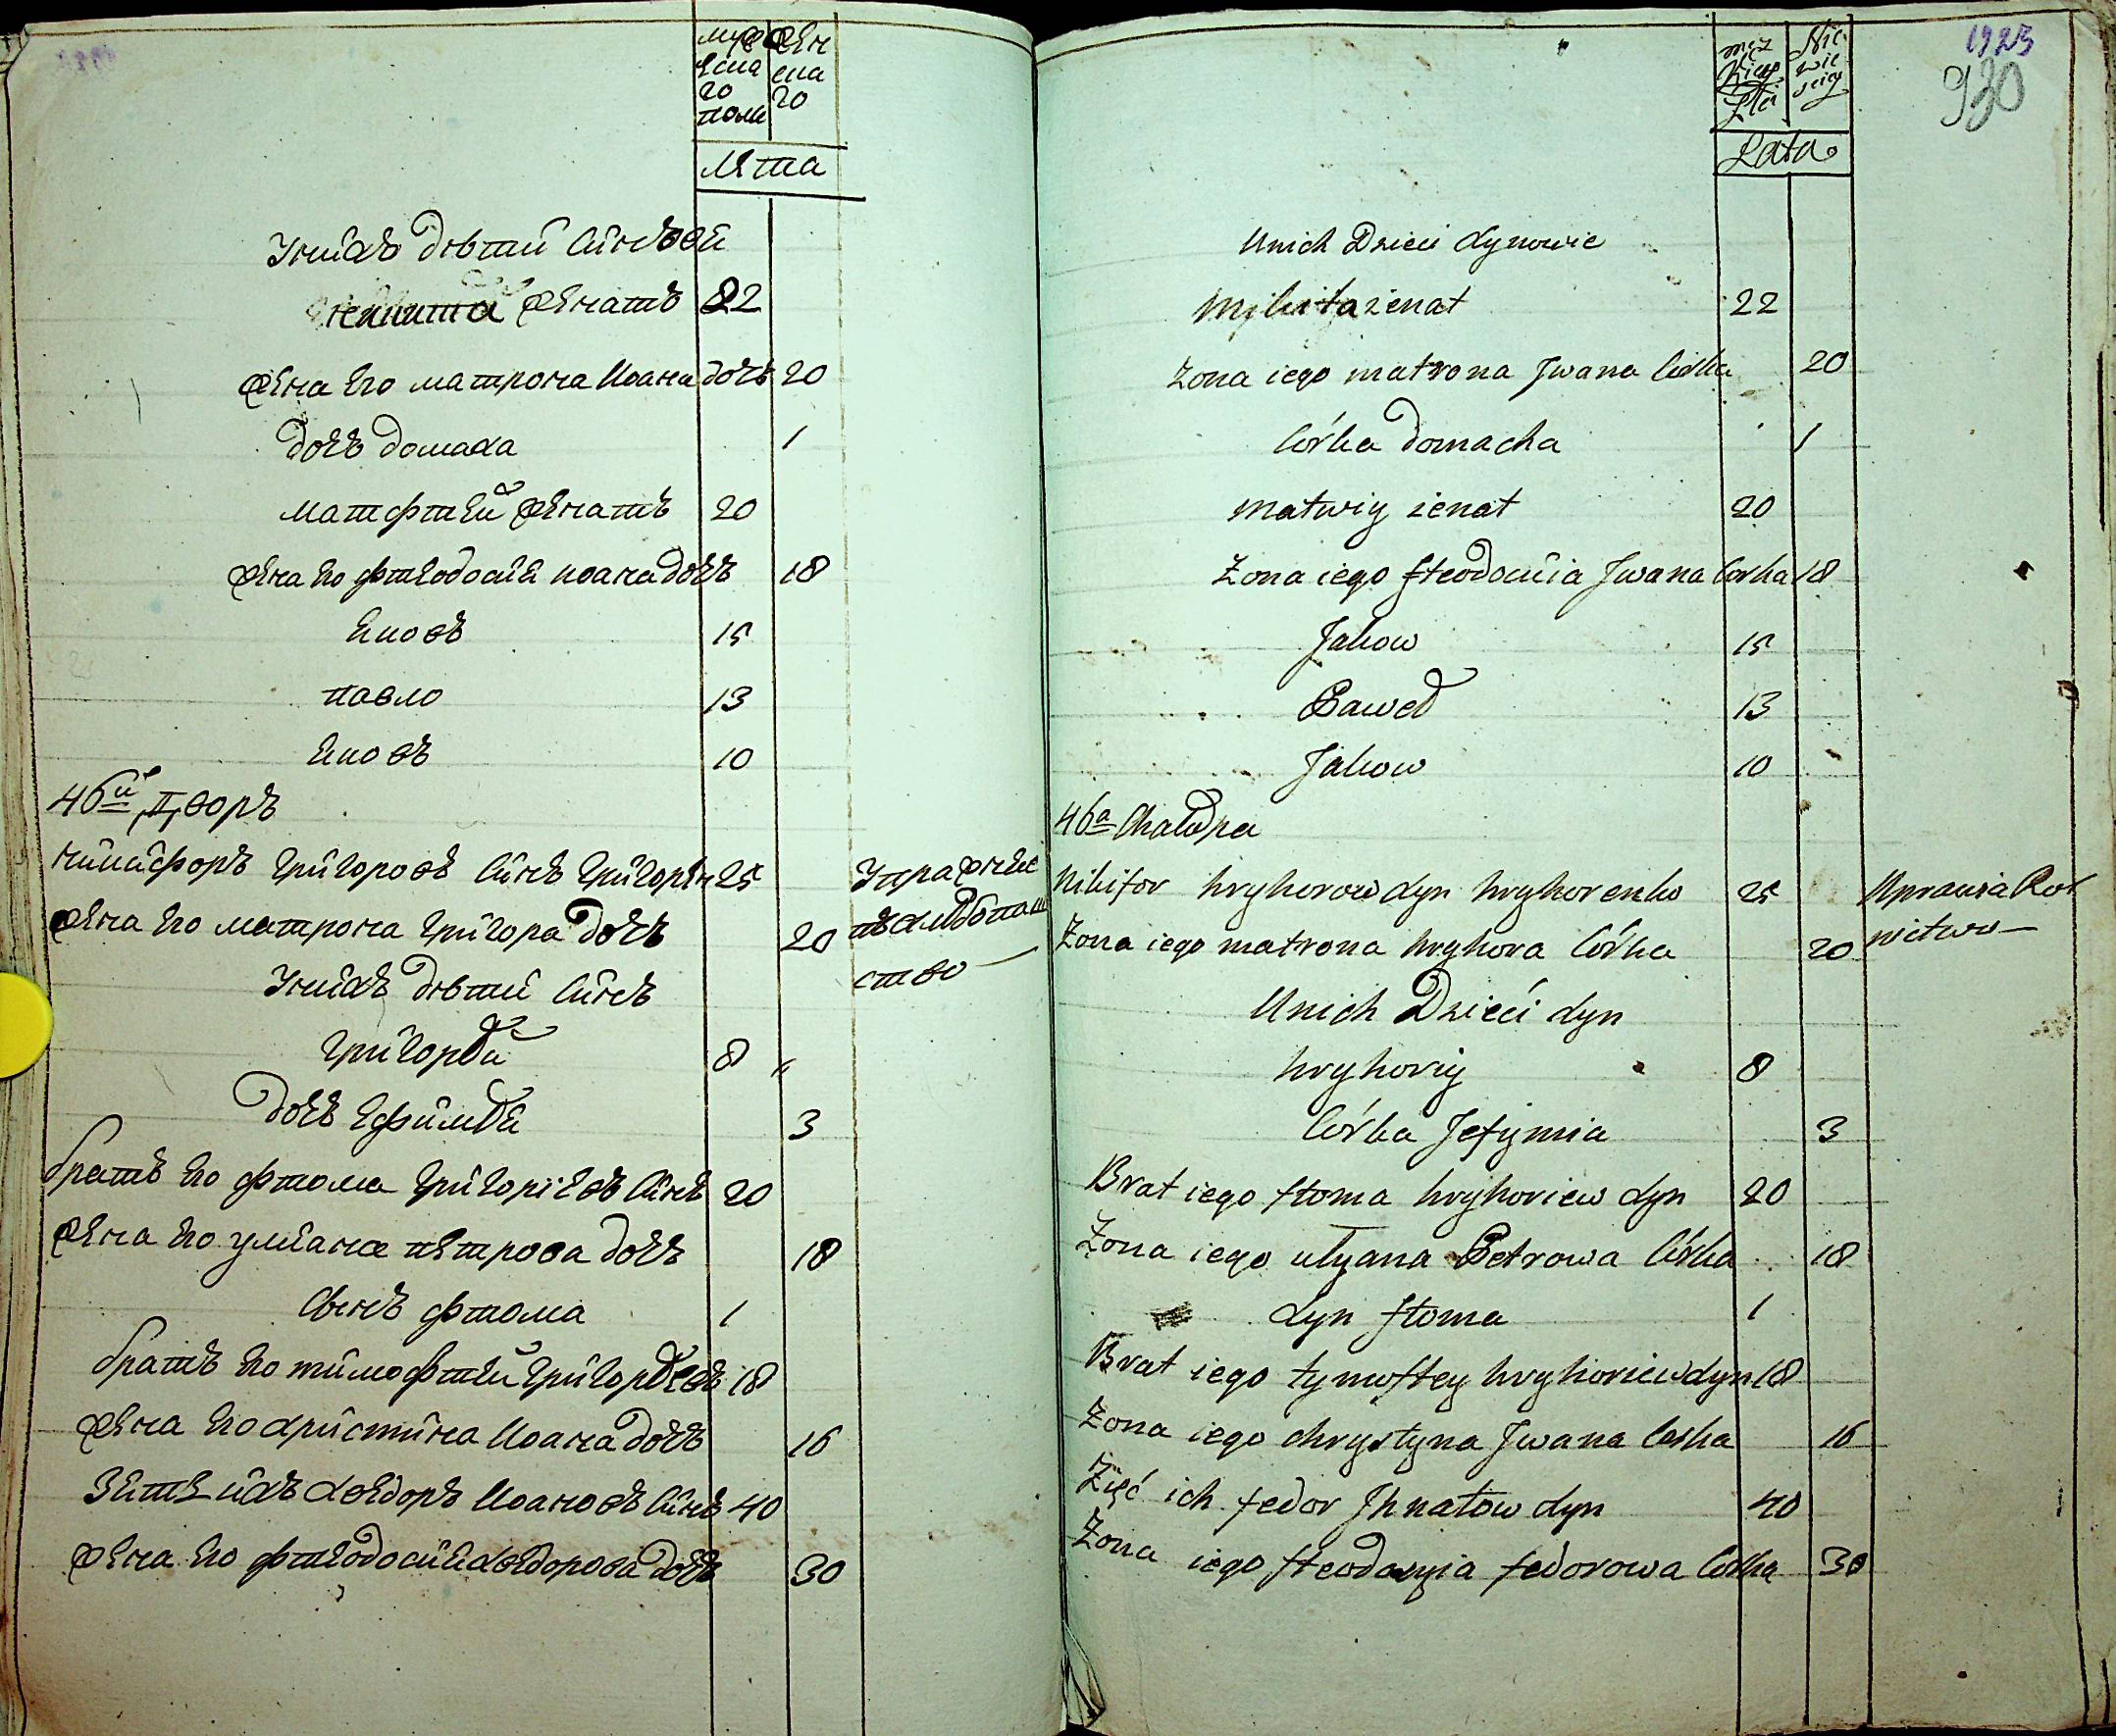 муже
ска
20
полu
жен
ска
20
Лѣта
У нихъ дѣти синове
Никита женатъ 22
жена его матрона Ивана дочь 20
дочь домаха 1
матфтей женатъ 20
жена его фтеодосія ивана дочь 18
Яковъ 15
павло 13
Яковъ 10
46й дворъ
никифоръ григоровъ синъ григорен 25
жена его матрона григора дочь 20
Упражнѣе
тъ хлѣбопаш
ство —
У нихъ дѣти синъ
григорій 8 "
дочь Ефимія 3
братъ его фтома григоріевъ синъ 20
жена его уліана петрова дочь 18
синъ фтома 1
братъ его тимофтей григоріевъ 18
жена его христина Ивана дочь 16
Зять ихъ хведоръ Ивановъ синъ 40
жена его фтеодосія хведорова дочь 30
1923
930
męz
kiey
Płci
Nie
wie
sciey
Lata
Unich Dzieci Synowie
Mikita żenat 22
Zona iego matrona Jwana Córka 20
Córka domacha 1
matwiy żenat 20
Zona iego fteodosiia Jwana Corka 18
Jakow 15
Paweł 13
Jakow 10
46a Chałupa
Nikifor hryhorow Syn hryhorenko 25
Zona iego matrona hryhora Córka 20
Uprawia Rol
nictwo —
Unich Dzieci Syn
hryhoriy 8
Córka Jefymia 3
Brat iego ftoma hryhoriew Syn 20
Zona iego ulyana Petrowa Córka 18
Syn ftoma 1
Brat iego tymoftey hryhoriew Syn 18
Zona iego chrystyna Jwana Corka 16
Zięć ich fedor Jhnatow Syn 40
Zona iego fteodosyia fedorowa Córka 30